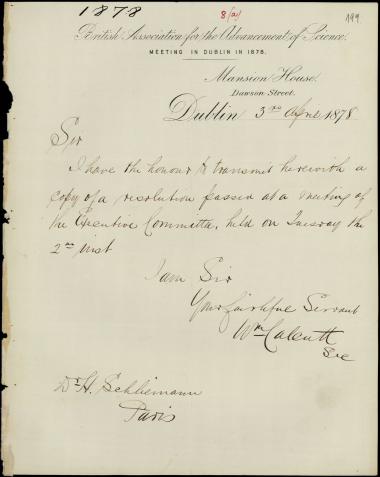 1878
8 (a)
199
British Association for the Advancement of Science.
MEETING IN DUBLIN IN 1878.
Mansion House
Dawson Street.
Dublin 3rd April 1878
Sir
I have the honour to transmit herewith a
copy of a resolution passed at a meeting of
the Executive Committee, held on Tuesday the
2nd inst
I am Sir
Your faithful Servant
Wm Calcutt
Sec
Dr H. Schliemann
Paris